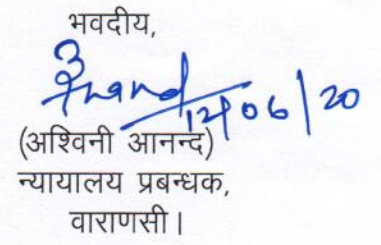 भवदीय,
Anand
12/06/20
(अश्विनी आनन्द)
न्यायालय प्रबन्धक,
वाराणसी।